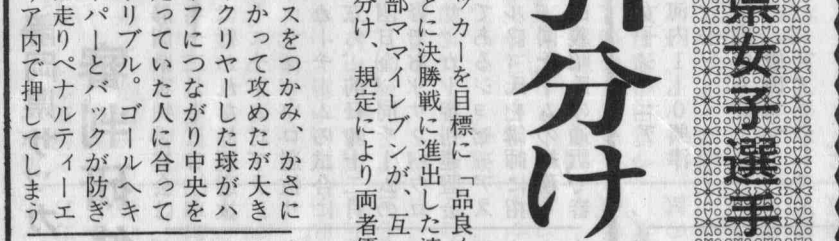 県女子選手
引分け
ッカーを目標に「品良
とに決勝戦に進出した
部ママイレブンが、互
分け、規定により両者優
スをつかみ、かさに
かって攻めたが大き
クリヤーした球がハ
フにつながり中央を
っていた人に合って
リブル。ゴールへキ
パーとバックが防ぎ
走りペナルティーエ
ア内で押してしまう